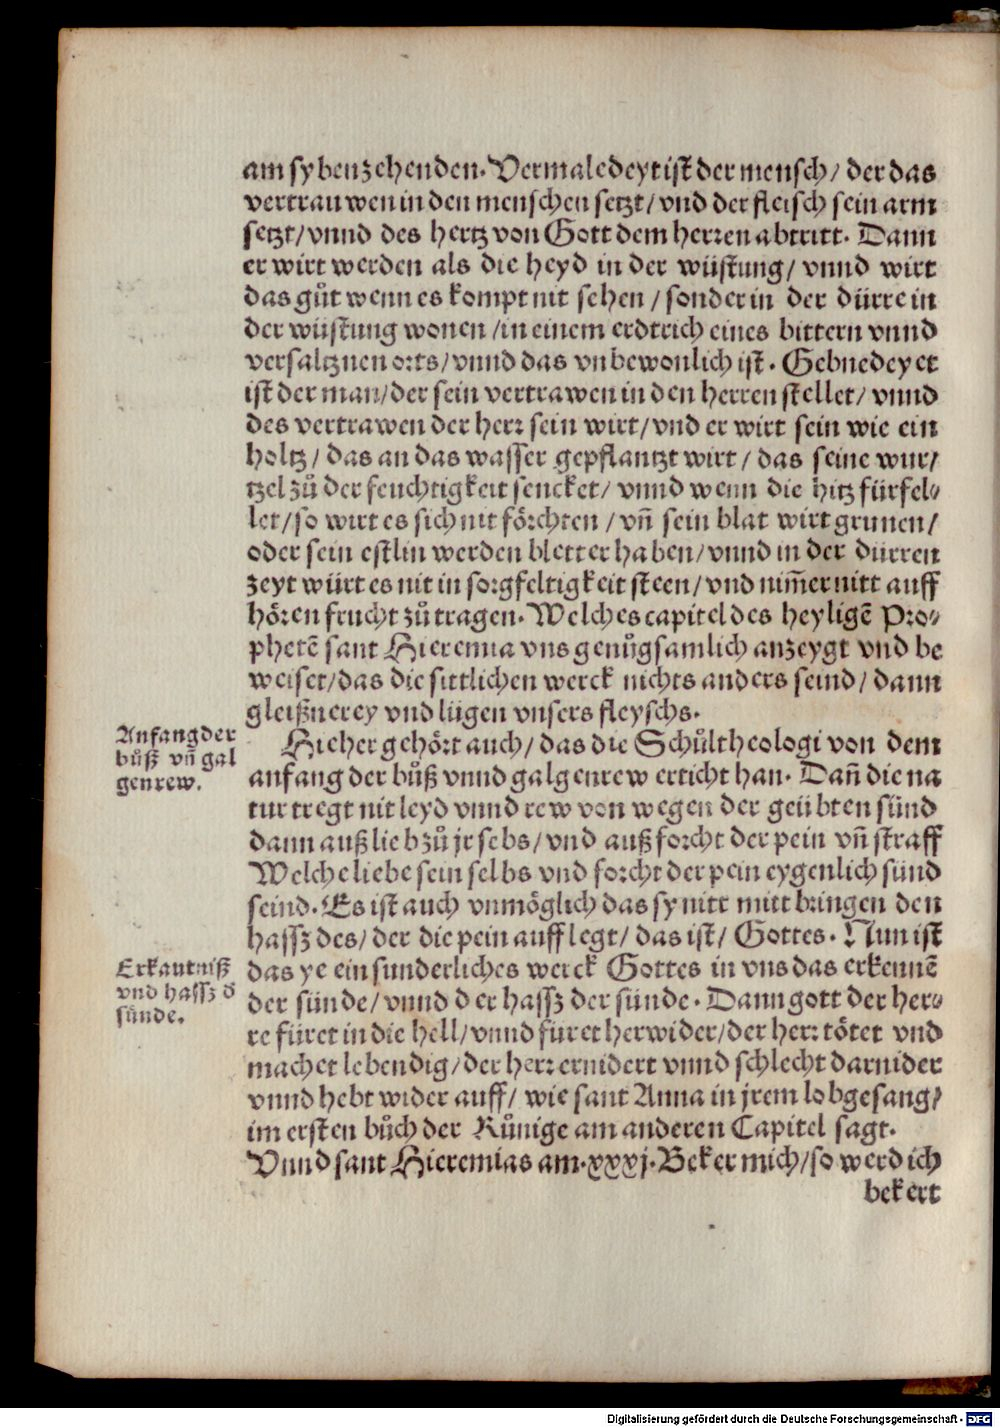 am sybenzehenden. Vermaledeyt ist der mensch/ der das
vertrauwen in den menschen setzt/ vnd der fleisch sein arm
setzt/ vnnd des hertz von Gott dem herren abtritt. Dann
er wirt werden als die heyd in der wüstung/ vnnd wirt
das gůt wenn es kompt nit sehen/ sonder in der dürre in
der wüstung wonen/ in einem erdtrich eines bittern vnnd
versaltznen orts/ vnnd das vnbewonlich ist. Gebnedeyet
ist der man/ der sein vertrawen in den herren stellet/ vnnd
des vertrawen der herr sein wirt/ vnd er wirt sein wie ein
holtz/ das an das wasser gepflantzt wirt/ das seine wur/
tzel zů der feuchtigkeit sencket/ vnnd wenn die hitz fürfel⸗
let/ so wirt es sich nit förchten/ vn̄ sein blat wirt grunen/
oder sein estlin werden bletter haben/ vnnd in der dürren
zeyt würt es nit in sorgfeltigkeit steen/ vnd nim̄er nitt auff
hören frucht zů tragen. Welches capitel des heyligē Pro⸗
phetē sant Hieremia vns genůgsamlich anzeygt vnd be
weiset/ das die sittlichen werck nichts anders seind/ dann
gleißnerey vnd lügen vnsers fleyschs.
Anfang der
bůß vn̄ gal
genrew.
Hieher gehört auch/ das die Schůltheologi von dem
anfang der bůß vnnd galgenrew erticht han. Dan̄ die na
tur tregt nit leyd vnnd rew von wegen der geübten sünd
dann auß lieb zů jr sebs/ vnd auß forcht der pein vn̄ straff
Welche liebe sein selbs vnd forcht der pein eygenlich sünd
seind. Es ist auch vnmöglich das sy nitt mitt bringen den
hassz des/ der die pein aufflegt/ das ist/ Gottes. Nun ist
Erkantniß
vnd hassz d̄
sünde.
das ye ein sunderliches werck Gottes in vns das erkennē
der sünde/ vnnd der hassz der sünde. Dann gott der her⸗
re füret in die hell/ vnnd füret herwider/ der herr tötet vnd
machet lebendig/ der herr ernidert vnnd schlecht darnider
vnnd hebt wider auff/ wie sant Anna in jrem lobgesang/
im ersten bůch der Kůnige am anderen Capitel sagt.
Vnnd sant Hieremias am. xxxj. Beker mich/ so werd ich
bekert
Digitalisierung gefördert durch die Deutsche Forschungsgemeinschaft - DFG